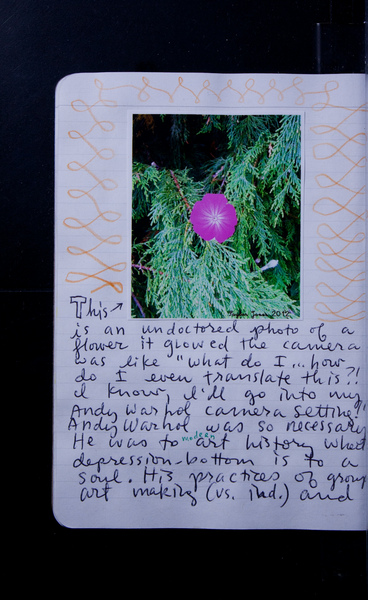 2012
This →
is an undoctored photo of a
flower it glowed the camera
was like "what do I... how
do I even translate this?!
I know, I'll go into my
Andy Warhol camera setting!"
Andy Warhol was so necessary
He was to modern art history what
depression-bottom is to a
soul. His practices of group
art making (vs. ind.) and